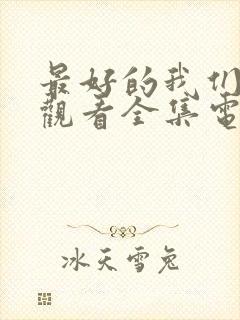 最好的我们
觀看全集電
冰天雪兔